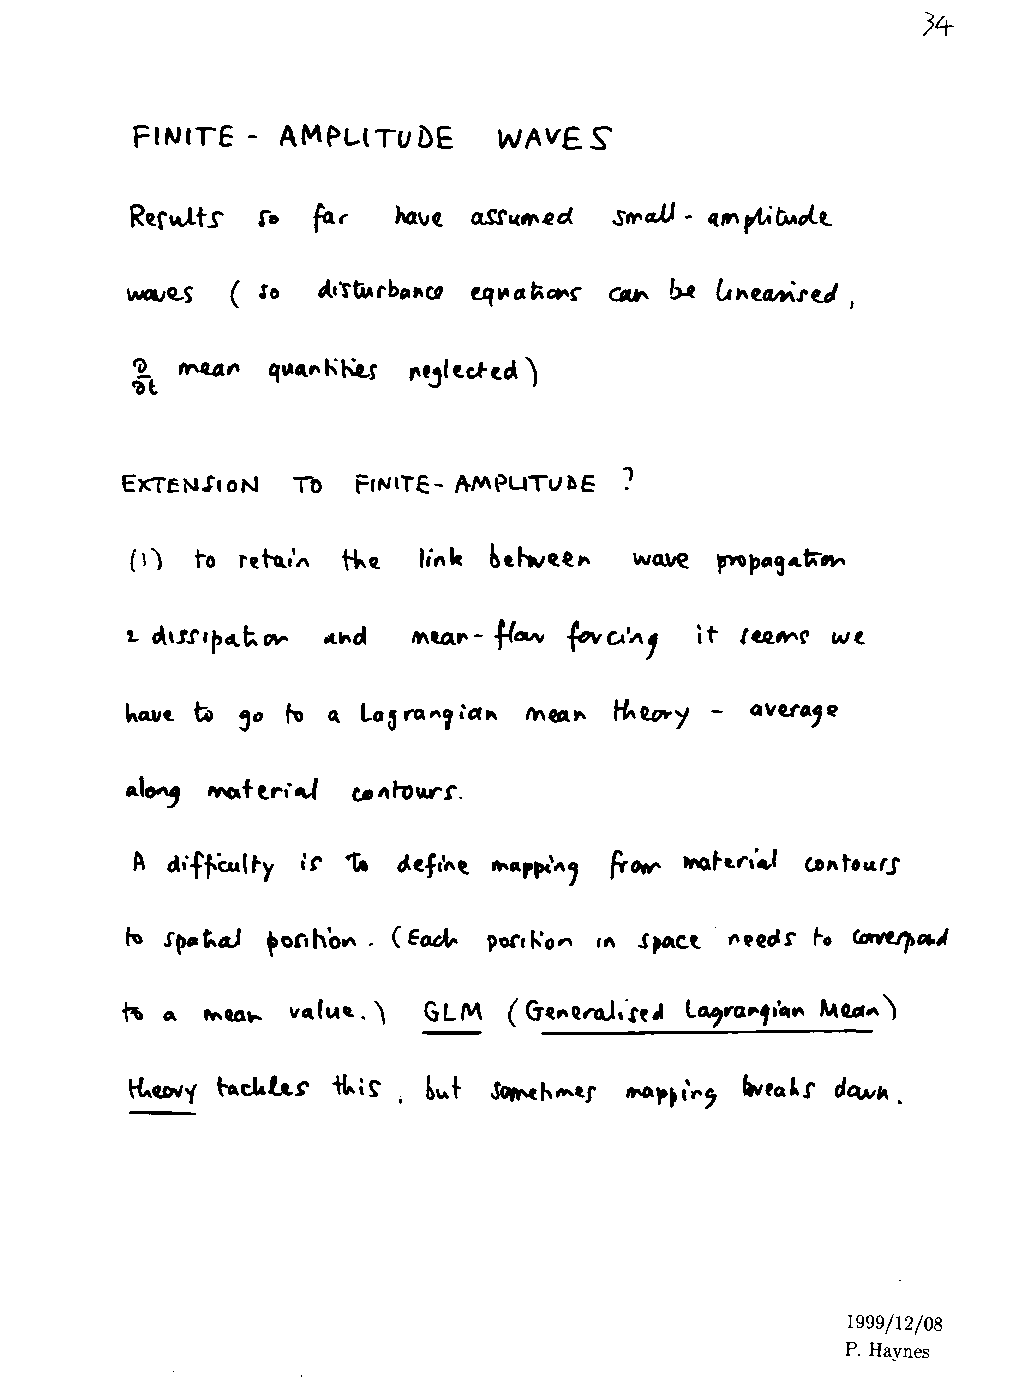 34
FINITE - AMPLITUDE WAVES
Results so far have assumed small - amplitude
waves ( so disturbance equations can be linearised ,
∂/∂t mean quantities neglected )
EXTENSION TO FINITE - AMPLITUDE ?
(1) to retain the link between wave propagation
& dissipation and mean - flow forcing it seems we
have to go to a Lagrangian mean theory - average
along material contours.
A difficulty is to define mapping from material contours
to spatial position. (Each position in space needs to correspond
to a mean value.) GLM (Generalised Lagrangian Mean)
theory tackles this, but sometimes mapping breaks down.
1999/12/08
P. Haynes